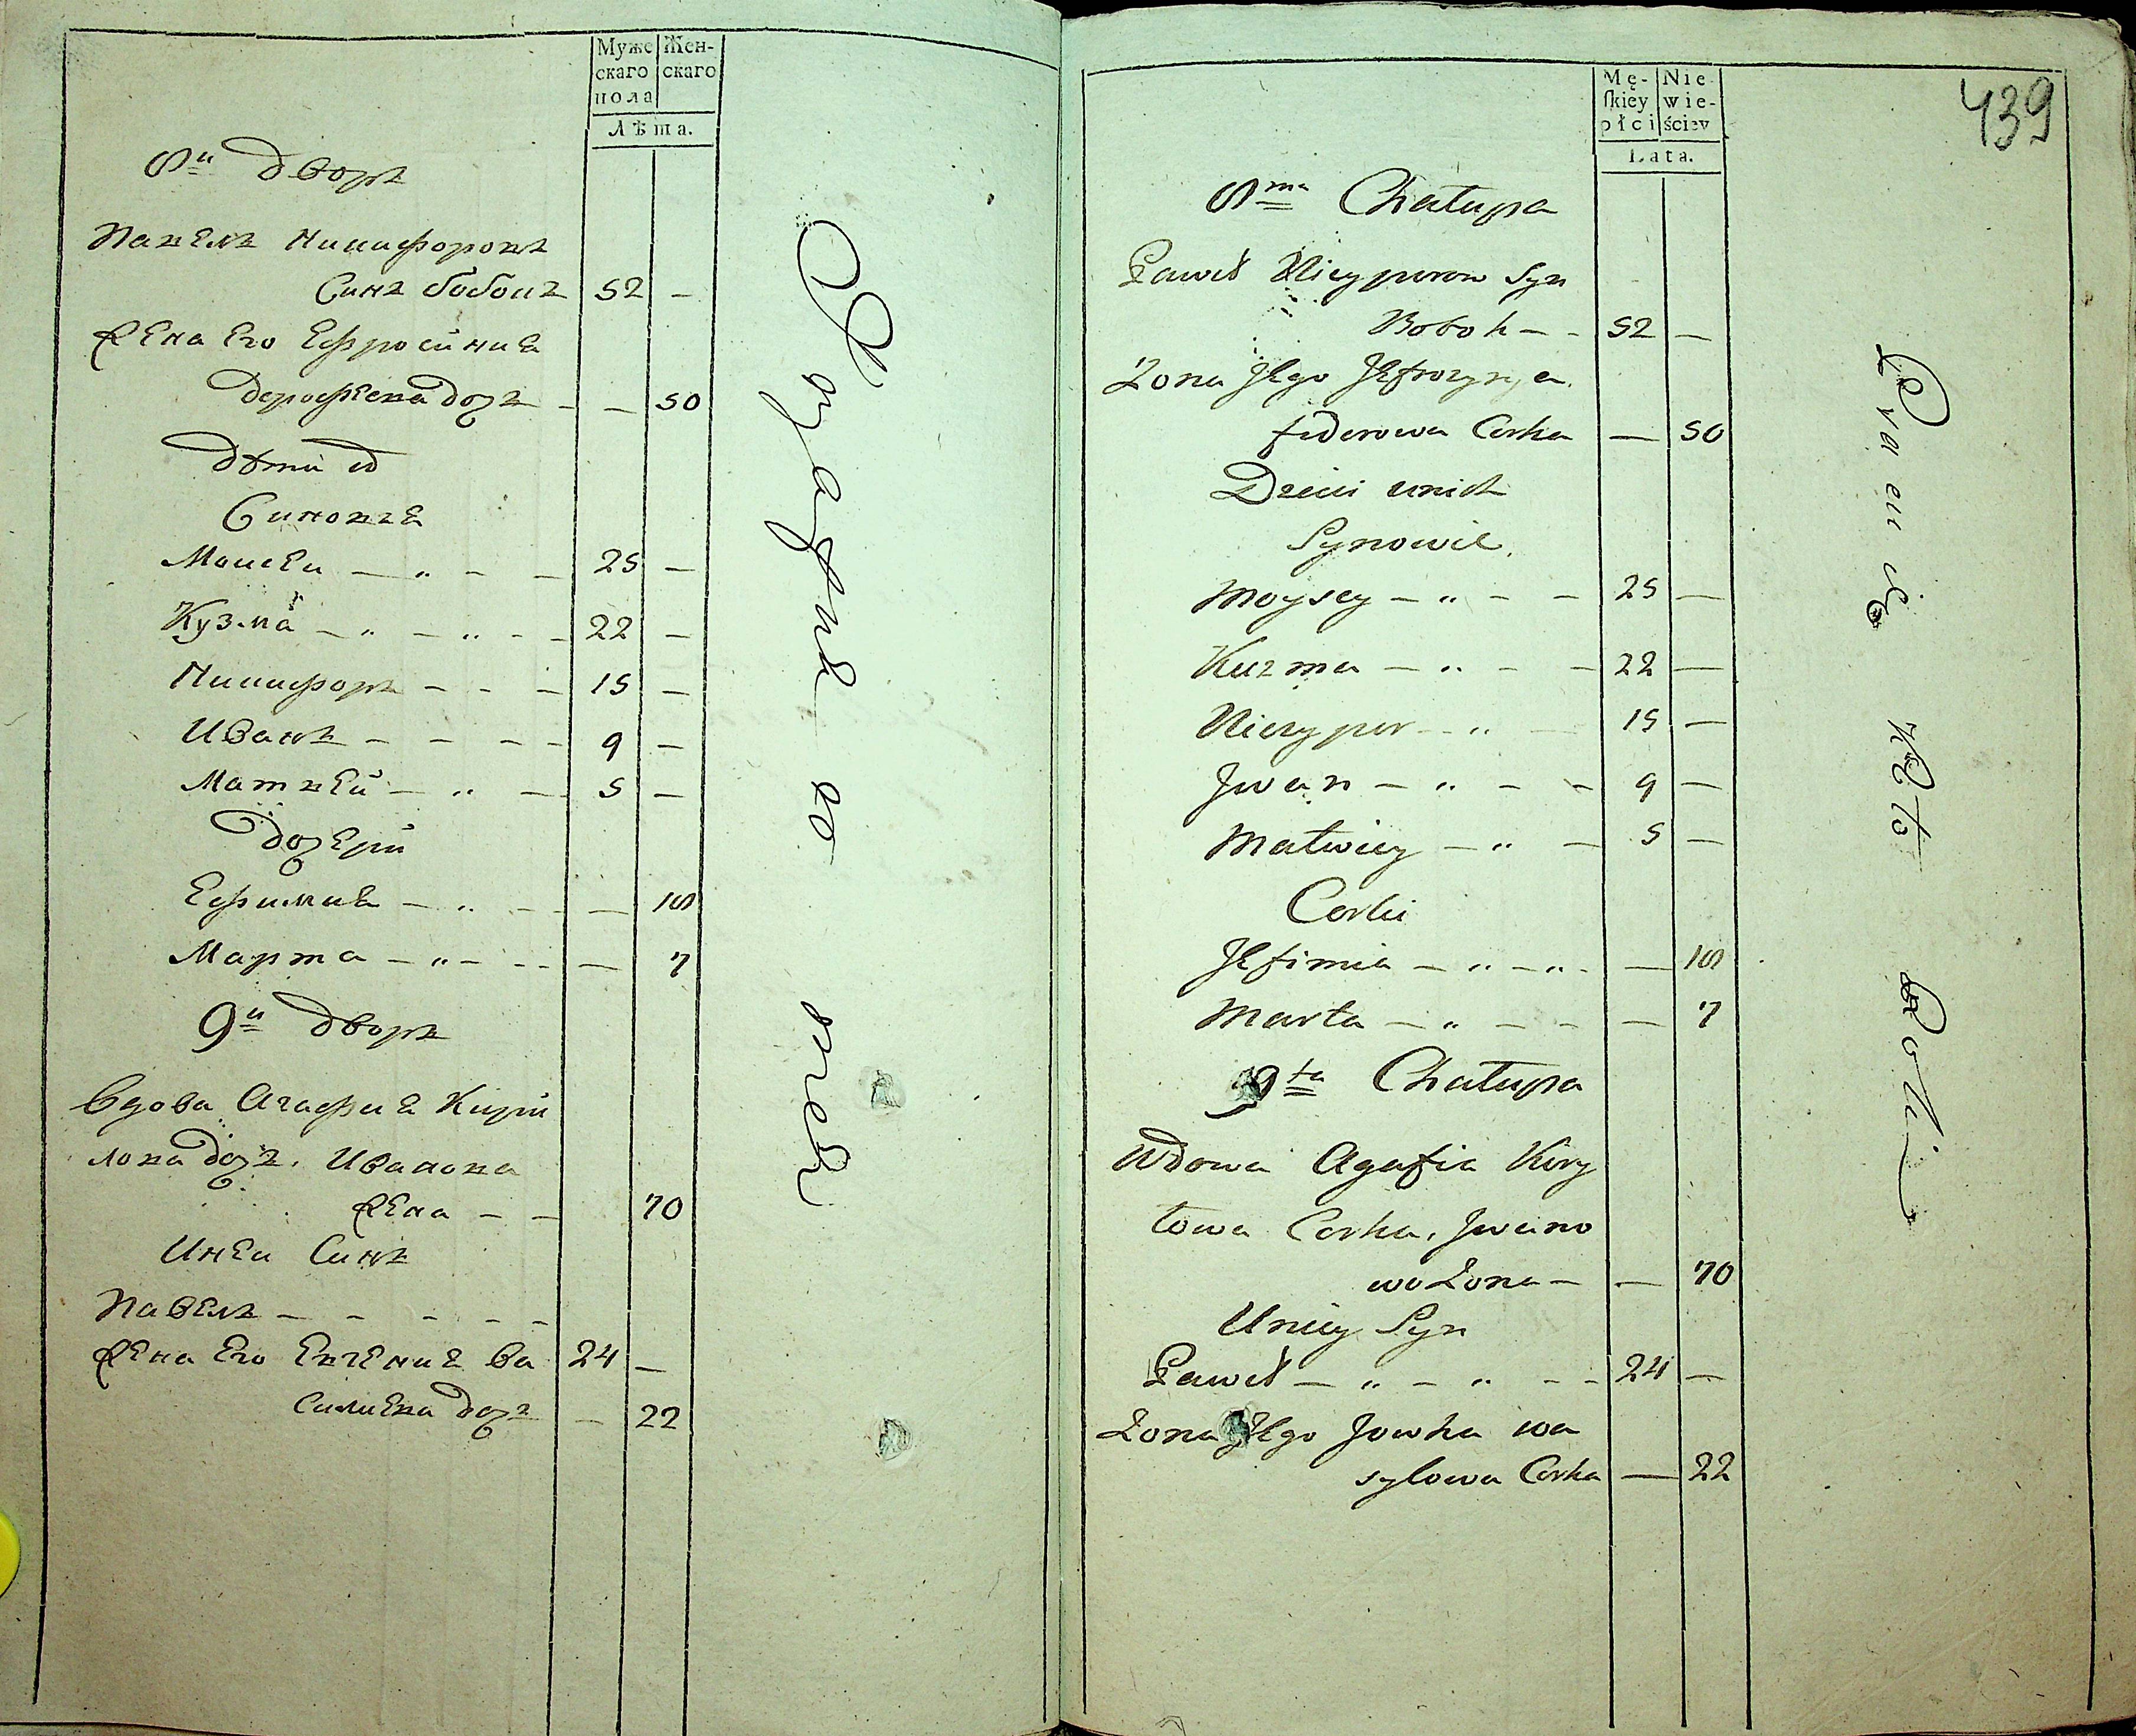 Муже
скаго
пола
Жен-
скаго
Лѣта.
8й дворъ
Павелъ Никифоровъ
Синъ бобокъ 52 —
Жена Его Ефросиния
дорофеева дочъ — — 50
дѣти
Синовъя
Моисеи — „ — — 25 —
Кузма — „ — „ — — 22 —
Никифоръ — — — 15 —
Иванъ — — — — 9 —
Матвей — „ — 5 —
дочери
Ефимия — „ — — 18
Марта — „ — — — 7
9й дворъ
Вдова Агафия Кири
лова дочъ, Иванова
жена — — 70
Инеи Синъ
Павелъ — — — — —
Жена Его Евгения Ва 24 —
силиева дочъ — 22
Mę-
skiey
płci
Nie
wie-
ściey
Lata.
439
8ma Chałupa
Paweł Niczyporow Syn
Boboh — — 52 —
Żona Jego Jefrozynia
fedorowa Corka — 50
Dzieci unich
Synowie,
Moysey — „ — — 25 —
Kuzma — „ — — 22 —
Niczypor — „ 15 —
Jwan — „ — — 9 —
Matwiey — „ — 5 —
Corki
Jefimia — „ — „ — 18
Marta — „ — — — 7
9ta Chałupa
Wdowa Agafia Kiry
łowa Corka, Jwano
wa Żona — — 70
Uniey Syn
Paweł — „ — „ — — 24 —
Żona Jego Jowha wa
sylowa Corka — 22